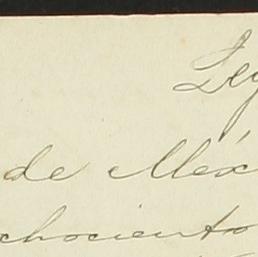 Leg
de Méx
chociento